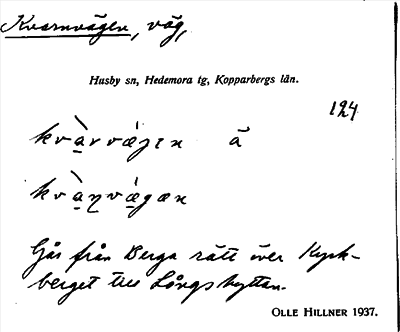 Kvarnvägen, väg,
Husby sn, Hedemora tg, Kopparbergs län.
124
kv̀a̲rvä́gɪn ā
kv̀a̲ɳvǽ̲gæn
Går från Berga rätt över Kyrk-
berget till Långshyttan.
OLLE HILLNER 1937.